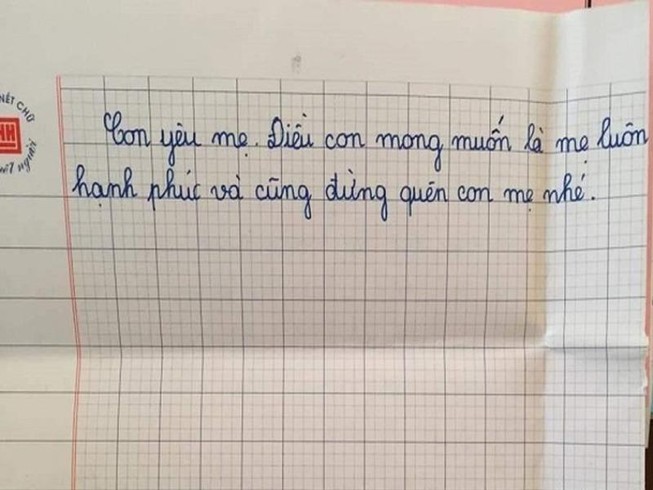 NÉT CHỮ
nết người
Con yêu mẹ. Điều con mong muốn là mẹ luôn
hạnh phúc và cũng đừng quên con mẹ nhé.